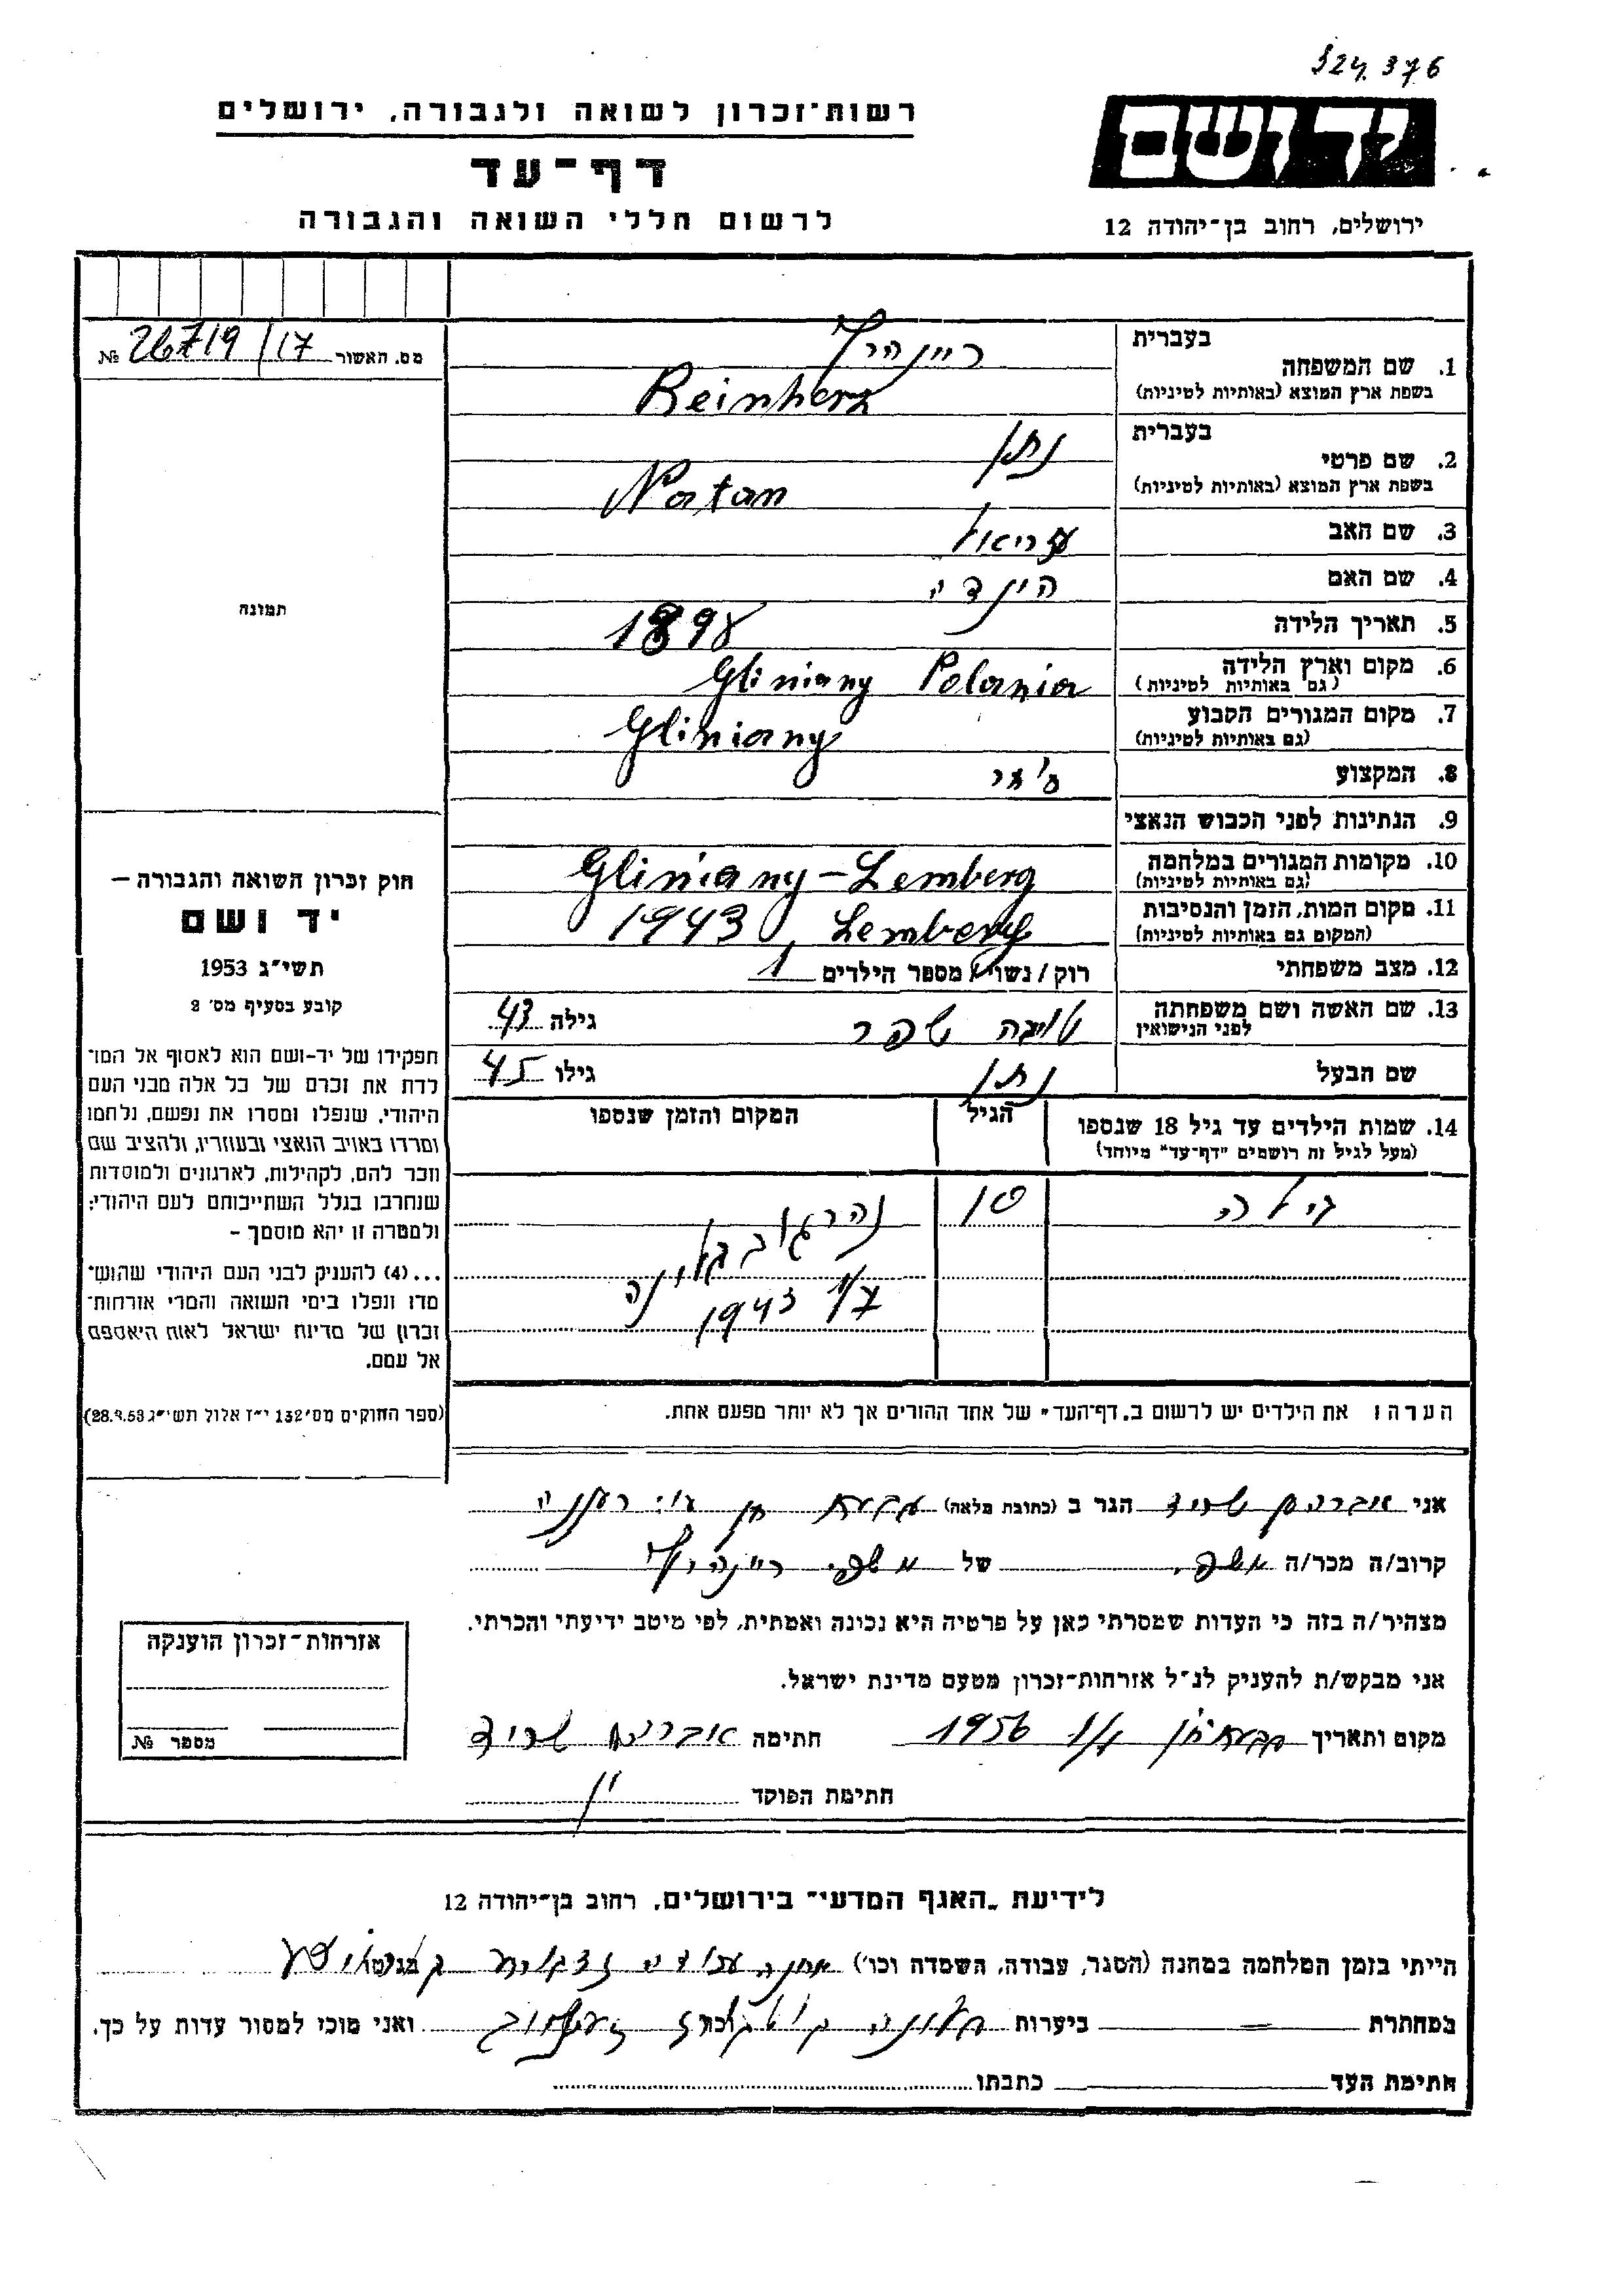 324.376
ידושם
ירושלים, רחוב בן־יהודה 12
רשות־זכרון לשואה ולגבורה, ירושלים
דף־עד
לרשום חללי השואה והגבורה
מס. האשור 26719/17 №
בעברית
1. שם המשפחה
ריינהרץ
בשפת ארץ המוצא (באותיות לטיניות)
Reinherz
בעברית
2. שם פרטי
נתן
בשפת ארץ המוצא (באותיות לטיניות)
Natan
3. שם האב
עזריאל
4. שם האם
הינדי
5. תאריך הלידה
1898
6. מקום וארץ הלידה
(גם באותיות לטיניות)
Gliniany Polania
7. מקום המגורים הקבוע
(גם באותיות לטיניות)
Gliniany
8. המקצוע
9. הנתינות לפני הכבוש הנאצי
10. מקומות המגורים במלחמה
(גם באותיות לטיניות)
Gliniany – Lemberg
11. מקום המות, הזמן והנסיבות
(המקום גם באותיות לטיניות)
1943 Lemberg
12. מצב משפחתי
רוק / נשוי / מספר הילדים 1
13. שם האשה ושם משפחתה
לפני הנישואין
טויבה שפר גילה 43
שם הבעל
נתן גילו 45
14. שמות הילדים עד גיל 18 שנספו
(מעל לגיל זה רושמים "דף־עד" מיוחד)
הגיל
המקום והזמן שנספו
10
1943
הערה: את הילדים יש לרשום ב„דף־העד" של אחד ההורים אך לא יותר מפעם אחת.
תמונה
חוק זכרון השואה והגבורה –
יד ושם
תשי"ג 1953
קובע בסעיף מס' 2
תפקידו של יד-ושם הוא לאסוף אל המו־
לדת את זכרם של כל אלה מבני העם
היהודי, שנפלו ומסרו את נפשם, נלחמו
ומרדו באויב הנאצי ובעוזריו, ולהציב שם
וזכר להם, לקהילות, לארגונים ולמוסדות
שנחרבו בגלל השתייכותם לעם היהודי;
ולמטרה זו יהא מוסמך –
...(4) להעניק לבני העם היהודי שהוש־
מדו ונפלו בימי השואה והמרי אזרחות־
זכרון של מדינת ישראל לאות היאספם
אל עמם.
(ספר החוקים מס' 132 י"ז אלול תשי"ג 28.8.53)
אני אברהם שריד הגר ב (כתובת מלאה) רעננה
קרוב/ה מכר/ה משפ. של משפ. ריינהרץ
מצהיר/ה בזה כי העדות שמסרתי כאן על פרטיה היא נכונה ואמתית, לפי מיטב ידיעתי והכרתי.
אני מבקש/ת להעניק לנ"ל אזרחות־זכרון מטעם מדינת ישראל.
מקום ותאריך 1956 חתימה אברהם שריד
חתימת הפוקד
אזרחות־זכרון הוענקה
מספר №
לידיעת „האגף המדעי" בירושלים, רחוב בן־יהודה 12
הייתי בזמן המלחמה במחנה (הסגר, עבודה, השמדה וכו') מחנה עבודה
במחתרת – ביערות ואני מוכן למסור עדות על כך.
חתימת העד כתבתו